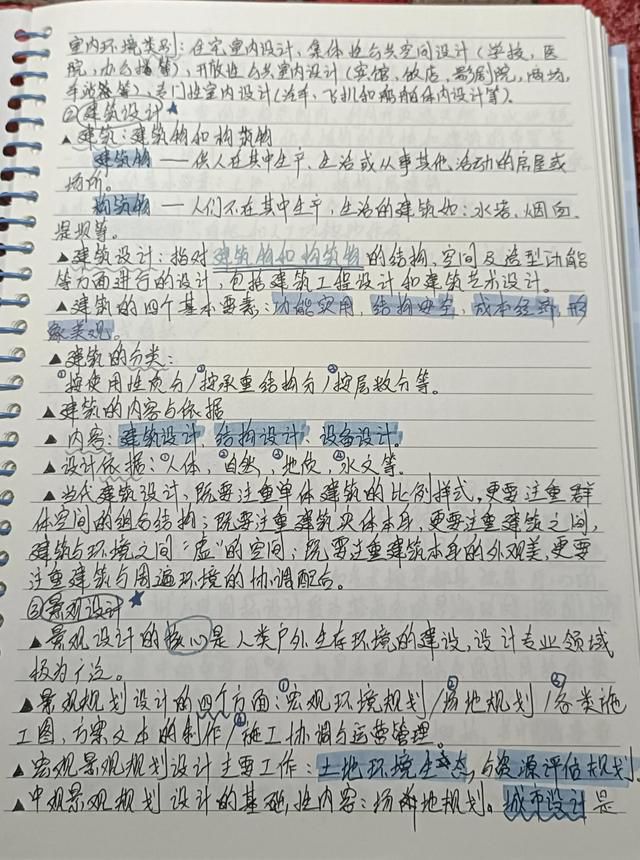 室内环境类别：住宅室内设计、集体性公共空间设计（学校、医
院，办公楼等），开放性公共室内设计（宾馆、饭店、影剧院，商场，
车站等），专门性室内设计（汽车、飞机和船舶体内设计等）。
②建筑设计★
▲建筑：建筑物和构筑物
建筑物——供人在其中生产、生活或从事其他活动的房屋或
场所。
构筑物——人们不在其中生产，生活的建筑如：水塔、烟囱
堤坝等。
▲建筑设计：指对建筑物和构筑物的结构、空间及造型功能
等方面进行的设计，包括建筑工程设计和建筑艺术设计。
▲建筑的四个基本要素：功能实用，结构安全，成本经济，形
象美观。
▲建筑的分类：
①按使用性质分/②按承重结构分/③按层数分等。
▲建筑的内容与依据
▲内容：建筑设计、结构设计、设备设计。
▲设计依据：①人体，②自然，③地质，④水文等.
▲当代建筑设计，既要注重单体建筑的比例样式，更要注重群
体空间的组合结构；既要注重建筑实体本身，更要注重建筑之间，
建筑与环境之间“虚”的空间；既要注重建筑本身的外观美，更要
注重建筑与周遍环境的协调配合。
③景观设计★
▲景观设计的核心是人类户外生存环境的建设，设计专业领域
极为广泛。
▲景观规划设计的四个方面：①宏观环境规划/②场地规划/③各类施
工图，方案文本的制作/④施工协调与运营管理。
▲宏观景观规划设计主要工作：土地环境生态，与资源评估规划.
▲中观景观规划设计的基础性内容：场地规划。城市设计是